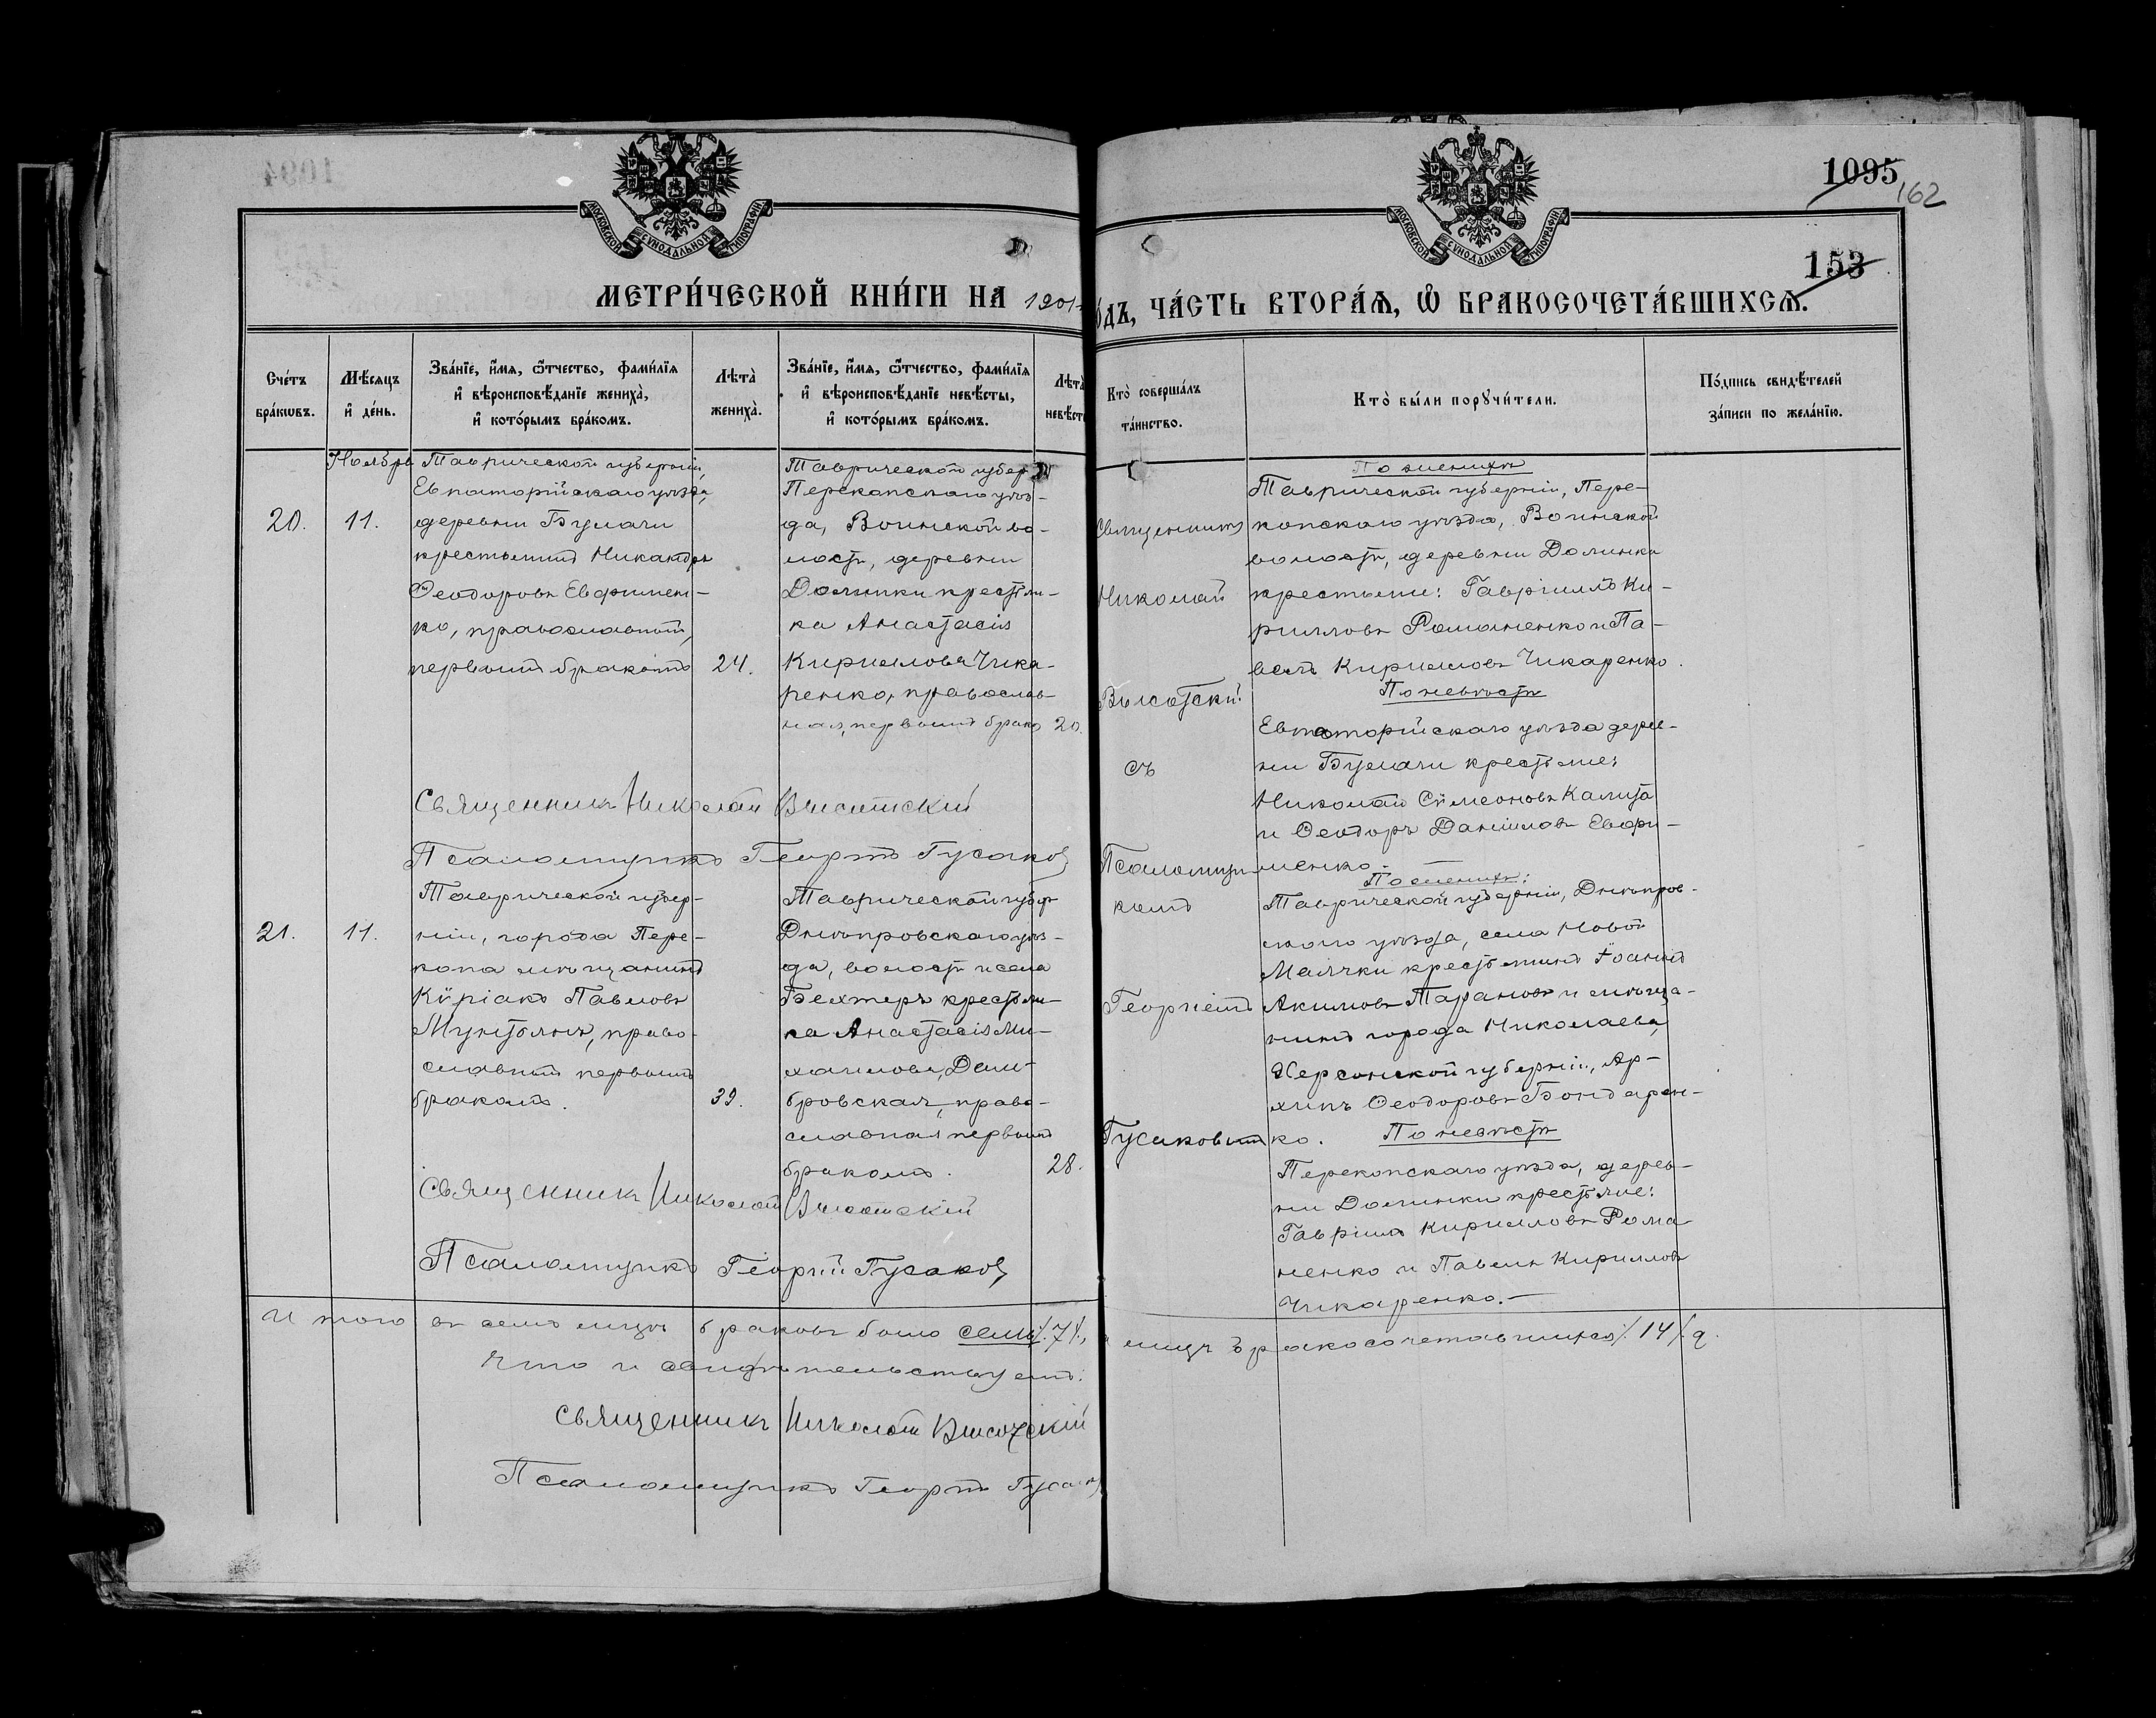 1095
162
153
МОСКОВСКОЙ СУНОДАЛЬНОЙ ТИПОГРАФІИ
МОСКОВСКОЙ СУНОДАЛЬНОЙ ТИПОГРАФІИ
МЕТРИ́ЧЕСКОЙ КНИ́ГИ НА 1901
о́дъ, ЧА́СТЬ ВТОРА́Я, Ѡ БРАКОСОЧЕТА́ВШИХСЯ.
Сче́тъ бра́кѡвъ.
Мѣ́сяцъ и҆ де́нь.
Зва́нїе, и҆́мя, ѻ҆́тчество, фами́лїя
и҆ вѣроисповѣ́данїе жениха̀,
и҆ кото́рымъ бра́комъ.
Лѣта̀ жениха̀.
Зва́нїе, и҆́мя, ѻ҆́тчество, фами́лїя
и҆ вѣроисповѣ́данїе невѣ́сты,
и҆ кото́рымъ бра́комъ.
Лѣта̀ невѣ́ст
Кто̀ соверша́лъ та́инство.
Кто̀ бы́ли порꙋчи́тели.
По́дпись свидѣ́телей
за́писи по жела́нїю.
20.
Ноябрь
11.
Таврической губерніи,
Евпаторійскаго уѣзда,
деревни Бумачи
крестьянинъ Никандръ
Ѳеодоровъ Евфимен-
ко, православный,
первымъ бракомъ
24.
Таврической губер
Перекопскаго уѣз-
да, Воинской во-
лости, деревни
Долинки крестьян-
ка Анастасія
Кириллова Чика-
ренко, православ-
ная, первымъ брако
20.
Священникъ
Николай
Высотскій
съ
Псаломщи-
комъ
Георгіемъ
Гусаковым
По женихѣ
Таврической губерніи, Пере-
копскаго уѣзда, Воинской
волости, деревни Долинки
крестьяне: Гавріилъ Ки-
рилловъ Романенко и Па-
велъ Кирилловъ Чикаренко.
По невѣстѣ
Евпаторійскаго уѣзда дерев-
ни Бумачи крестьяне:
Николай Сѵмеоновъ Калита
и Ѳеодоръ Даніиловъ Евфи-
менко.
Священникъ Николай Высотскій
Псаломщикъ Георгій Гусаков
21.
11.
Таврической губер-
ніи, города Пере-
копа мѣщанинъ
Кѵріакъ Павловъ
Мунтянъ, право-
славный первымъ
бракомъ.
39.
Таврической губер
Днѣпровскаго уѣз-
да, волости и села
Бехтеръ крестьян-
ка Анастасія Ми-
хаилова, Дом-
бровская, право-
славная первымъ
бракомъ.
28.
По женихѣ:
Таврической губерніи, Днѣпров-
скаго уѣзда, села Новой
Маячки крестьянинъ Іоаннъ
Акимовъ Тарановъ и мѣща-
нинъ города Николаева,
Херсонской губерніи, Ар-
хипъ Ѳеодоровъ Бондарен-
ко. По невѣстѣ
Перекопскаго уѣзда, дерев-
ни Долинки крестьяне:
Гавріилъ Кирилловъ Рома
ненко и Павелъ Кирилловъ
Чикаренко.—
Священникъ Николай Высотскій
Псаломщикъ Георгій Гусаков
Итого въ семъ мѣсяцѣ браковъ было семь /7/,
лицъ бракосочетавшихся /14/
Что и свидѣтельствуемъ:
Священникъ Николай Высотскій
Псаломщикъ Георгій Гусаков